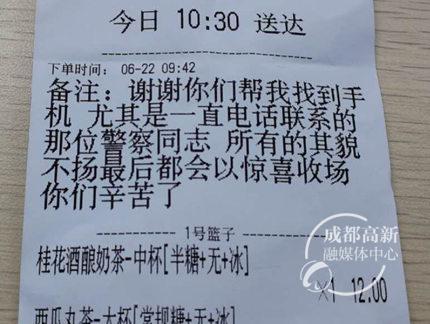 今日 10:30 送达
下单时间： 06-22 09:42
备注：谢谢你们帮我找到手
机 尤其是一直电话联系的
那位警察同志 所有的其貌
不扬最后都会以惊喜收场
你们辛苦了
1号篮子
桂花酒酿奶茶-中杯[半糖+无+冰]
×1 12.00
西瓜丸茶-大杯[常规糖+无+冰]
成都高新
融媒体中心